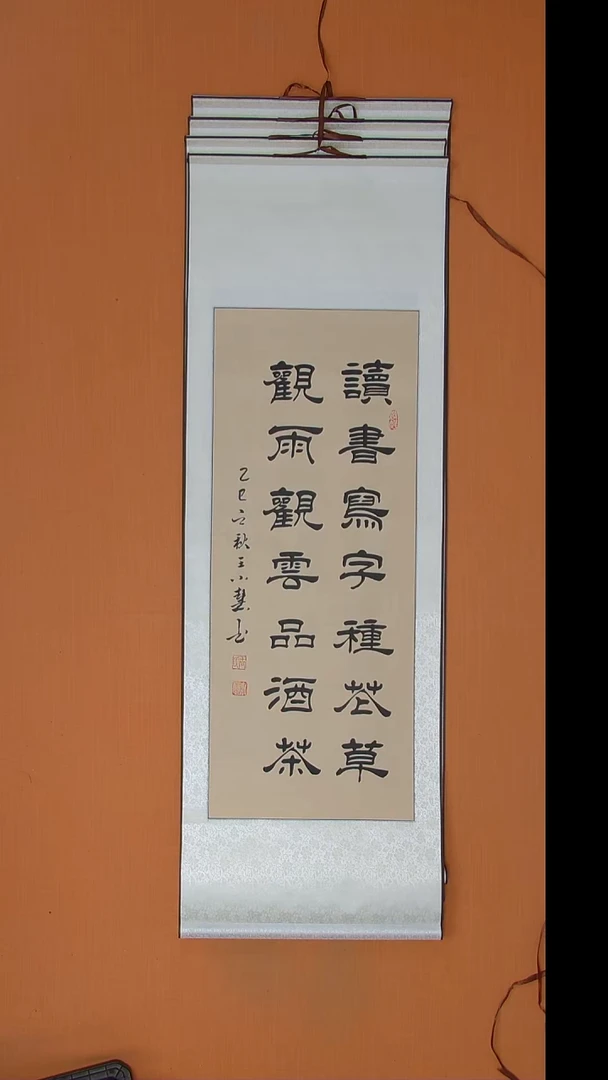 讀書寫字種花草
觀雨觀雲品酒茶
乙巳立秋王小慧書